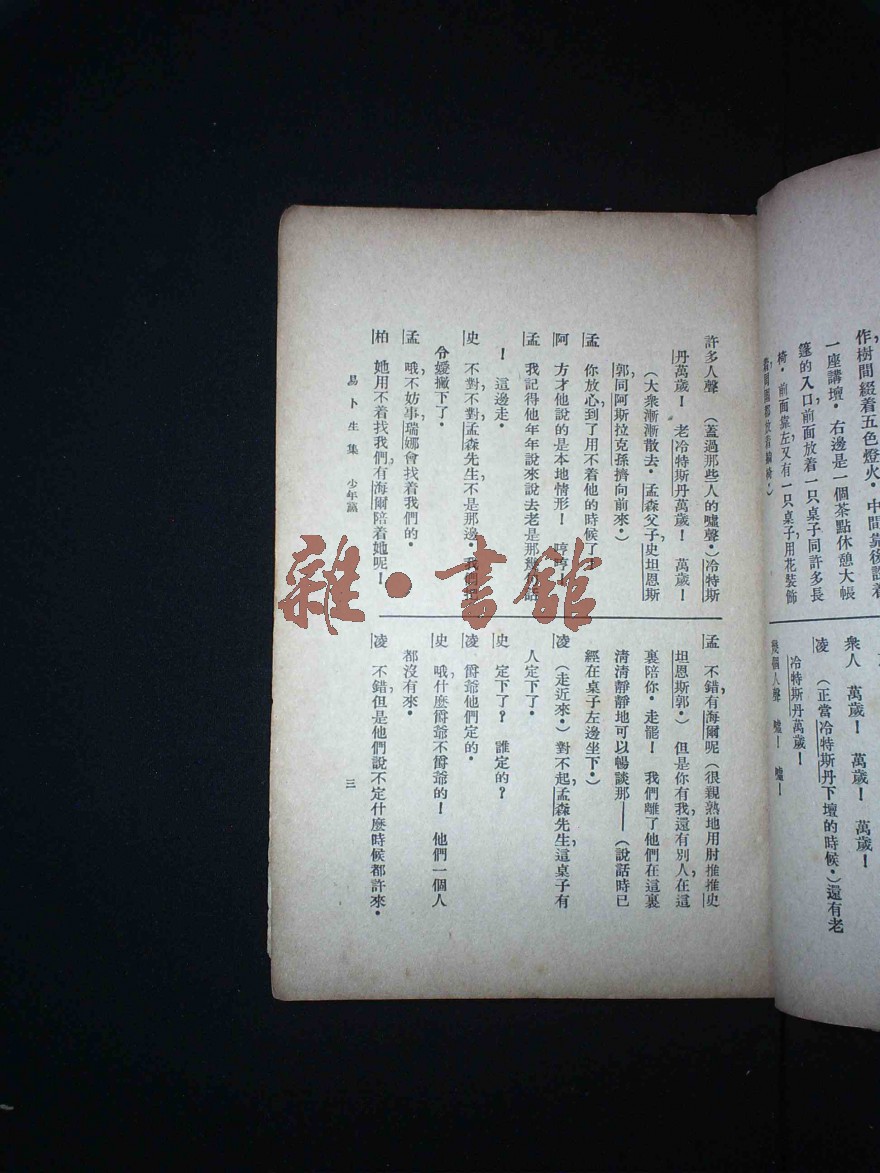 作樹間綴着五色燈火・中間靠後設着
一座講壇・右邊是一個茶點休憩大帳
篷的入口，前面放着一只桌子同許多長
椅・前面靠左又有一只桌子，用花裝飾
衆人　萬歲！　萬歲！　萬歲！
凌　（正當冷特斯丹下壇的時候・）還有老
冷特斯丹萬歲！
幾個人聲　噓！　噓！
許多人聲　（蓋過那些人的噓聲・）冷特斯
丹萬歲！　老冷特斯丹萬歲！　萬歲！
（大衆漸漸散去・孟森父子，史坦恩斯
郭，同阿斯拉克孫擠向前來・）
孟　你放心到了用不着他的時候了！
阿　方才他說的是本地情形！　哼哼！
孟　我記得他年年說來說去老是那幾句話
！　這邊走・
史　不對，不對，孟森先生，不是那邊・我們
令嬡撇下了・
孟　哦，不妨事，瑞娜會找着我們的・
柏　她用不着找我們，有海爾陪着她呢！
孟　不錯，有海爾呢（很親熟地用肘推推史
坦恩斯郭・）　但是你有我，還有別人，在這
裏陪你・走罷！　我們離了他們在這裏
清清靜靜地可以暢談那——（說話時已
經在桌子左邊坐下・）
凌　（走近來・）對不起，孟森先生，這桌子有
人定下了・
史　定下了？　誰定的？
凌　爵爺他們定的・
史　哦，什麼爵爺不爵爺的！　他們一個人
都沒有來・
凌　不錯，但是他們說不定什麼時候都許來・
易卜生集　少年黨
三
雜・書館